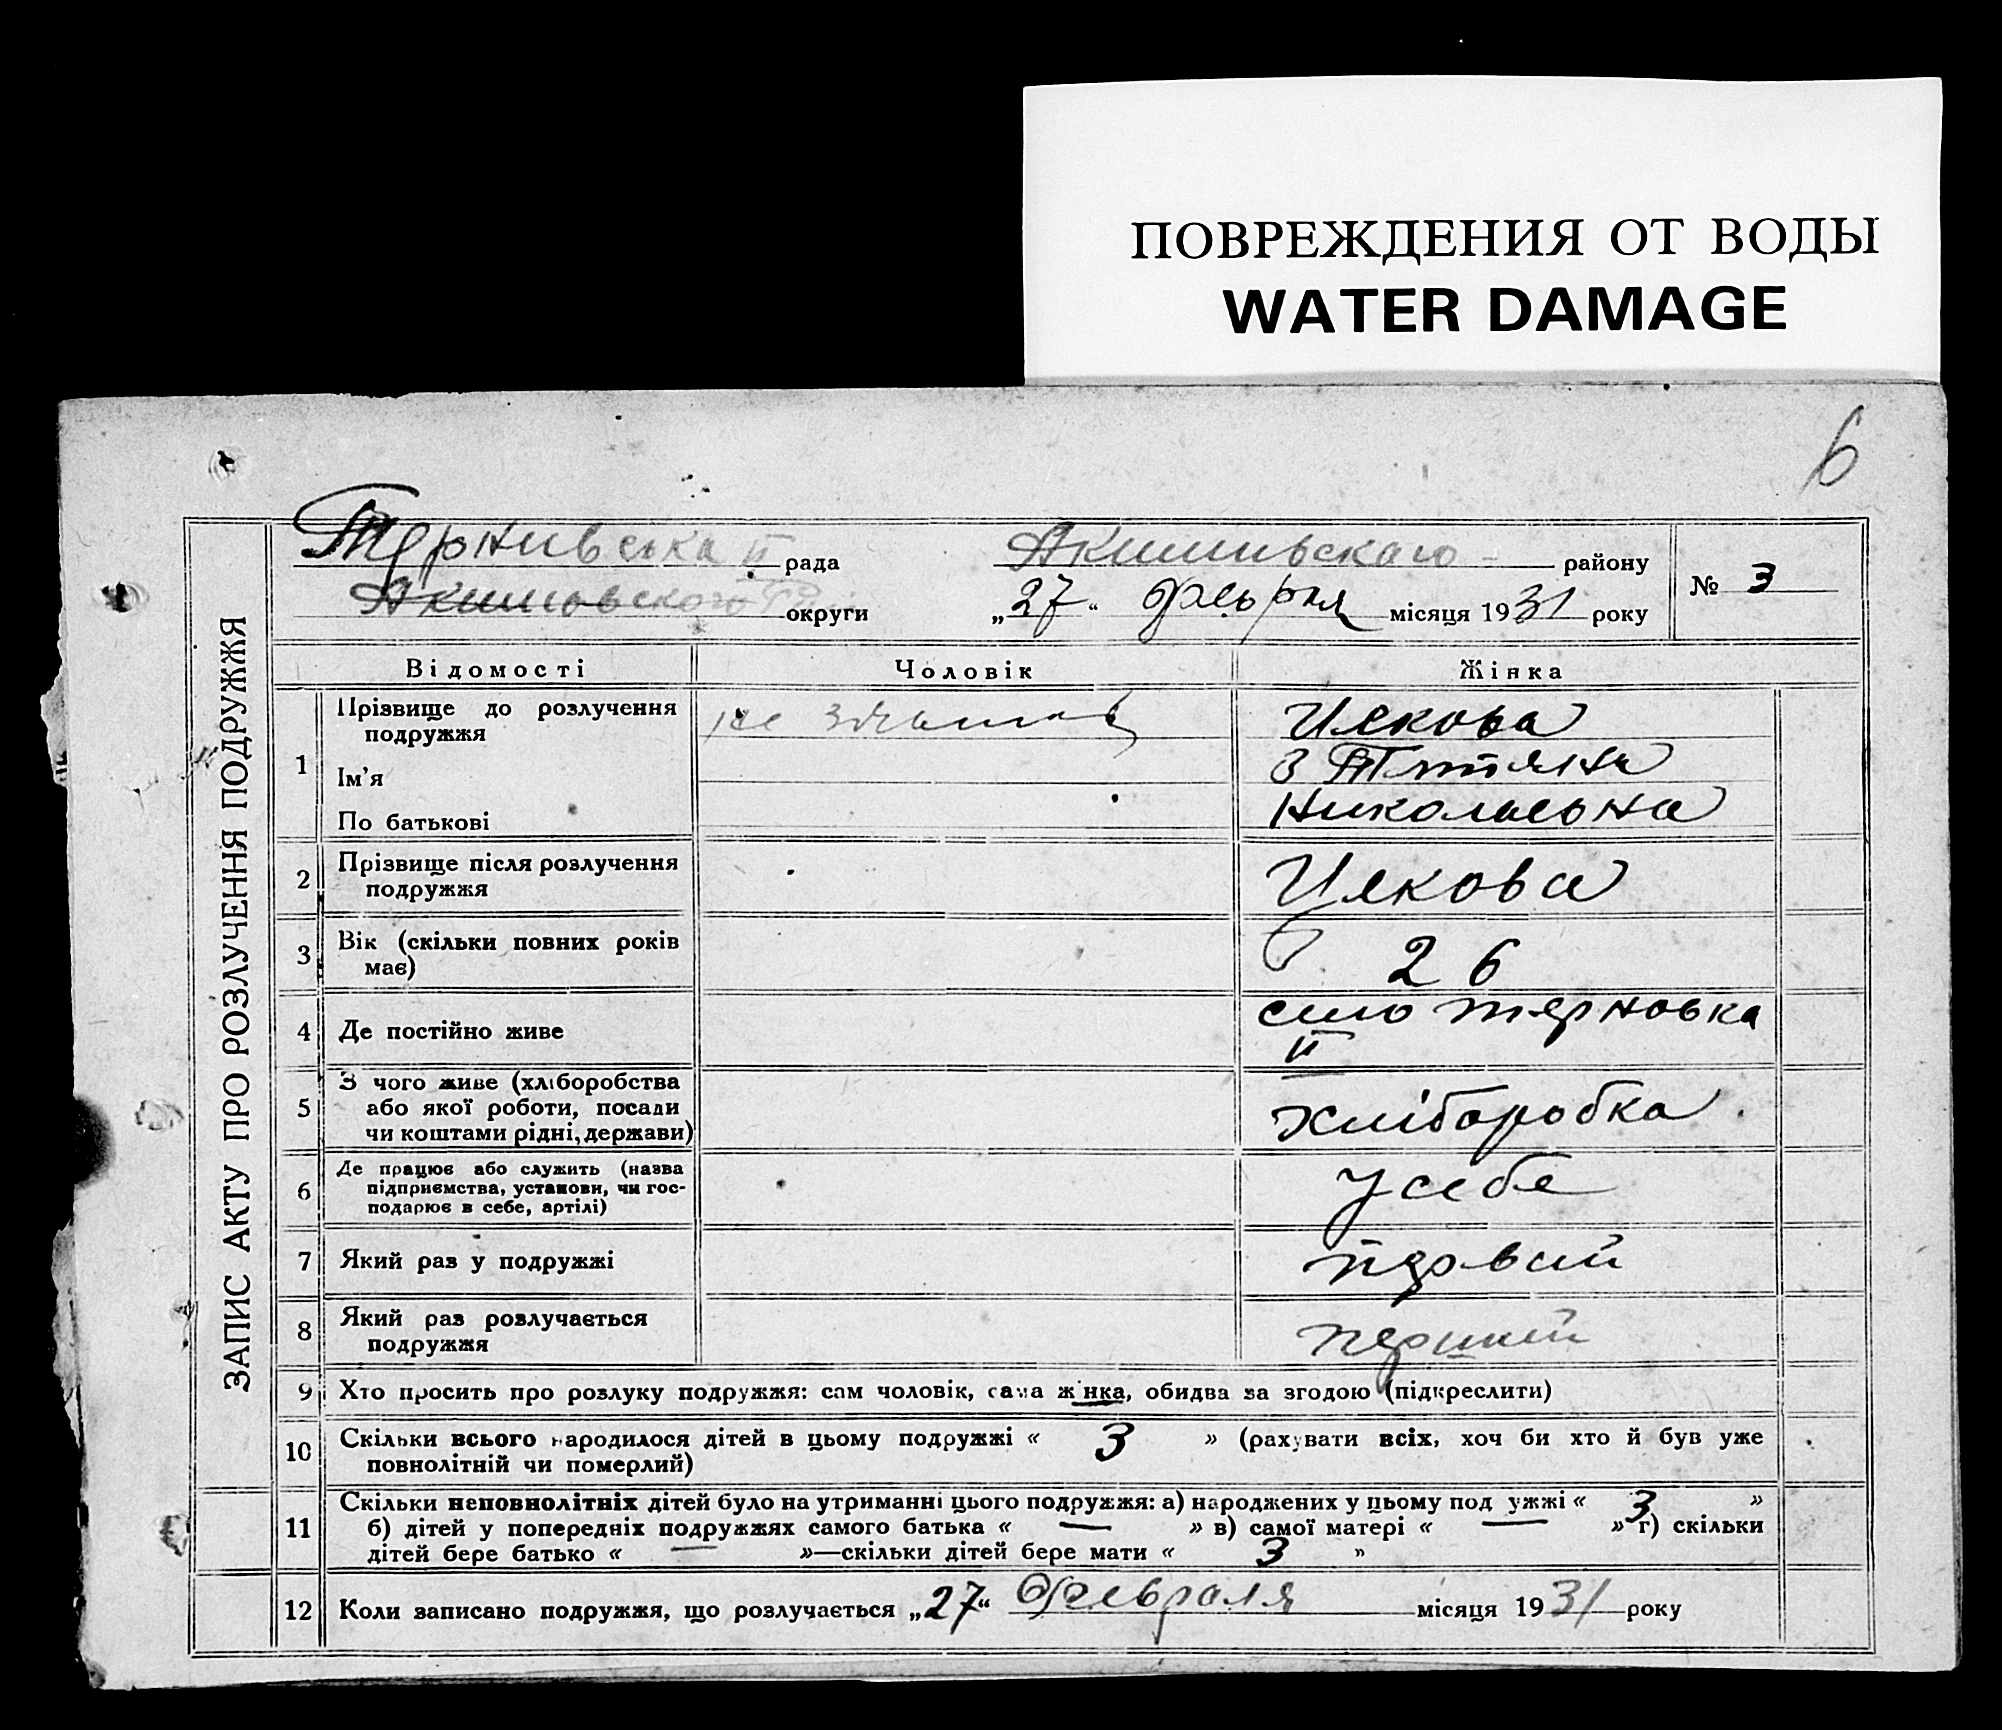 ПОВРЕЖДЕНИЯ ОТ ВОДЫ
WATER DAMAGE
6
ЗАПИС АКТУ ПРО РОЗЛУЧЕННЯ ПОДРУЖЖЯ
Тернивська II рада Акимивскаго району
№ 3
Акимовского округи „27“ февраля місяця 1931 року
Відомості Чоловік Жінка
1 Прізвище до розлучення подружжя Ілекова
Ім’я Татяна
По батькові Николаевна
2 Прізвище після розлучення
подружжя
Ілекова
3 Вік (скільки повних років
має)
26
4 Де постійно живе село терновка
II
5 З чого живе (хліборобства
або якої роботи, посади
чи коштами рідні, держави)
хліборобка
6 Де працює або служить (назва
підприємства, установи, чи гос-
подарює в себе, артілі)
у себе
7 Який раз у подружжі первий
8 Який раз розлучається
подружжя
перший
9 Хто просить про розлуку подружжя: сам чоловік, сама жінка, обидва за згодою (підкреслити)
10 Скільки всього народилося дітей в цьому подружжі « 3 » (рахувати всіх, хоч би хто й був уже
повнолітній чи померлий)
11 Скільки неповнолітніх дітей було на утриманні цього подружжя: а) народжених у цьому подружжі « 3 »
б) дітей у попередніх подружжях самого батька « — » в) самої матері « — » г) скільки
дітей бере батько « — »—скільки дітей бере мати « 3 »
12 Коли записано подружжя, що розлучається „27“ Февраля місяця 1931 року